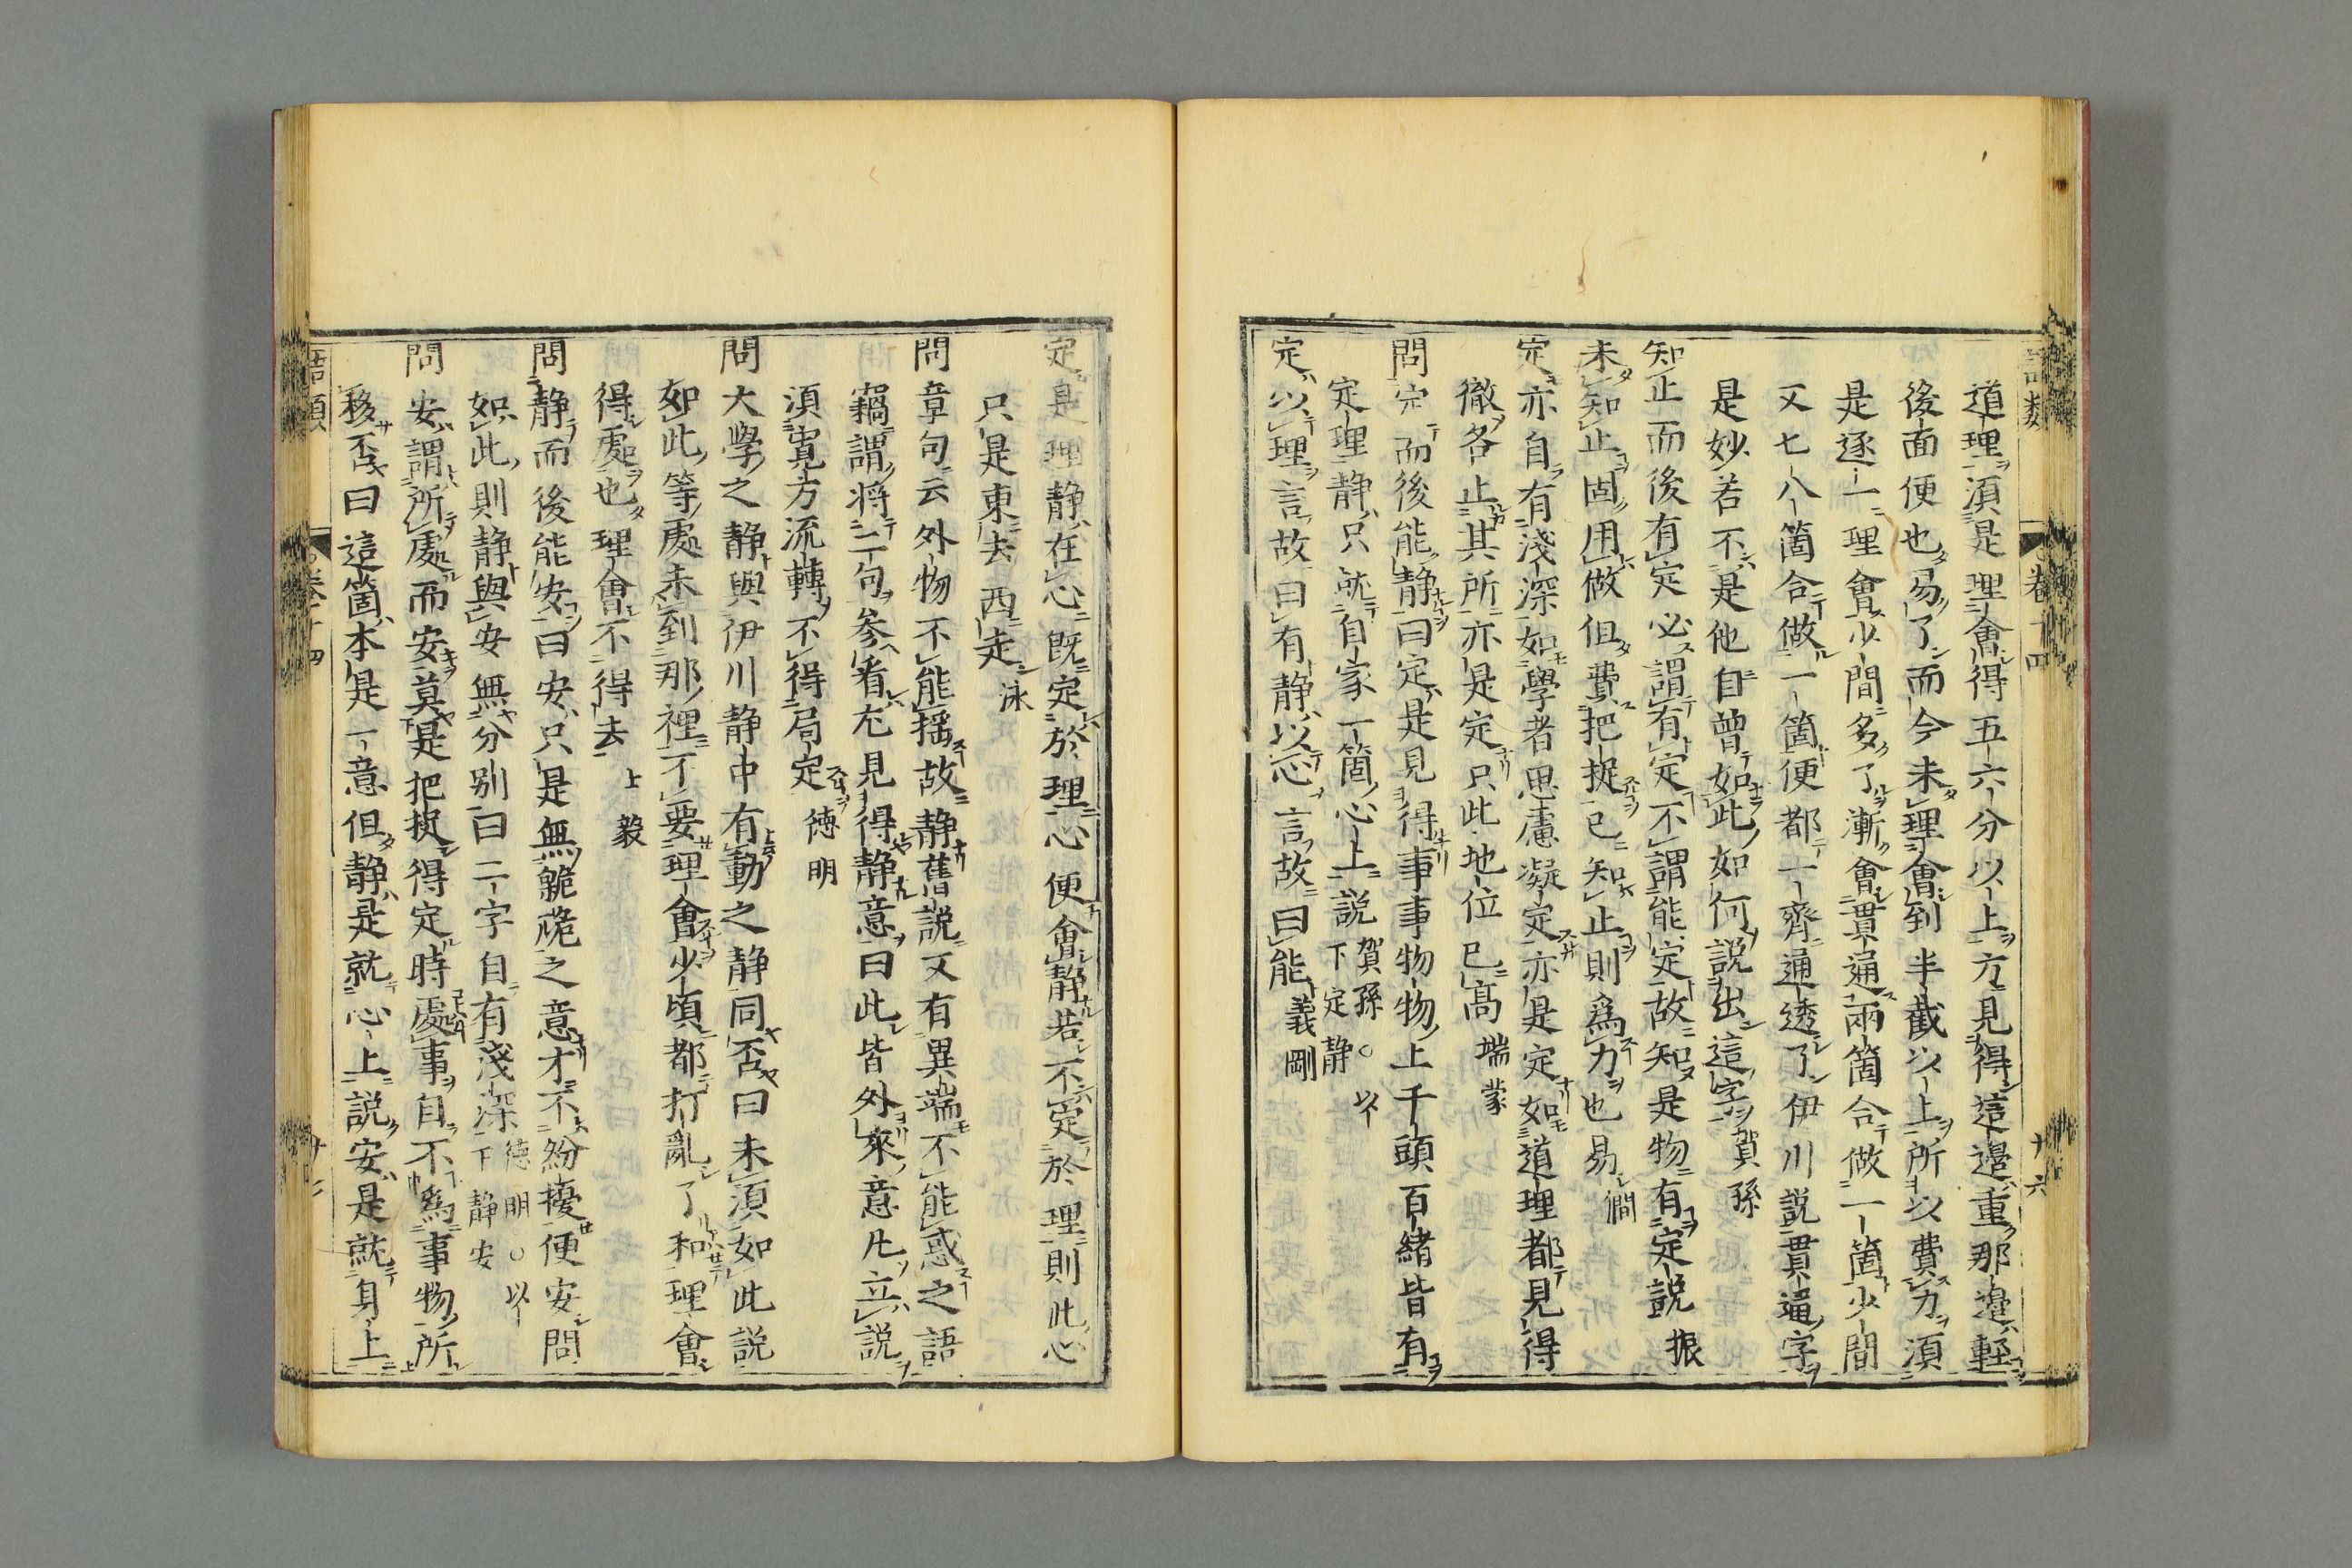 道理須是理會得五六分以上方見得這邊重那邊輕
後面便也易了而今未理會到半截以上所以費力須
是逐一理會少間多了漸會貫通兩箇合做一箇少間
又七八箇合做一箇便都一齊通透了伊川説貫通字
是妙若不是他自曾如此如何説出這字賀孫
知止而後有定必謂有定不謂能定故知是物有定説振
未知止固用做但費把捉已知止則爲力也易僩
定亦自有淺深如學者思慮凝定亦是定如道理都見得
徹各止其所亦是定只此地位已高端蒙
問定而後能静曰定是見得事事物物上千頭百緒皆有
定理静只就自家一箇心上説賀孫○以下定静
定以理言故曰有静以心言故曰能義剛
定是理静在心既定於理心便會静若不定於理則此心
只是東去西走泳
問章句云外物不能揺故静舊説又有異端不能惑之語
竊謂將二句参看尤見得静意曰此皆外來意凡立説
須寛方流轉不得局定德明
問大學之静與伊川静中有動之静同否曰未須如此説
如此等處未到那裡不要理會少頃都打亂了和理會
得處也理會不得去士毅
問静而後能安曰安只是無臲卼之意才不紛擾便安問
如此則静與安無分别曰二字自有淺深德明○以下静安
問安謂所處而安莫是把捉得定時處事自不爲事物所
移否曰這箇本是一意但静是就心上説安是就身上
語類
卷十四
十六